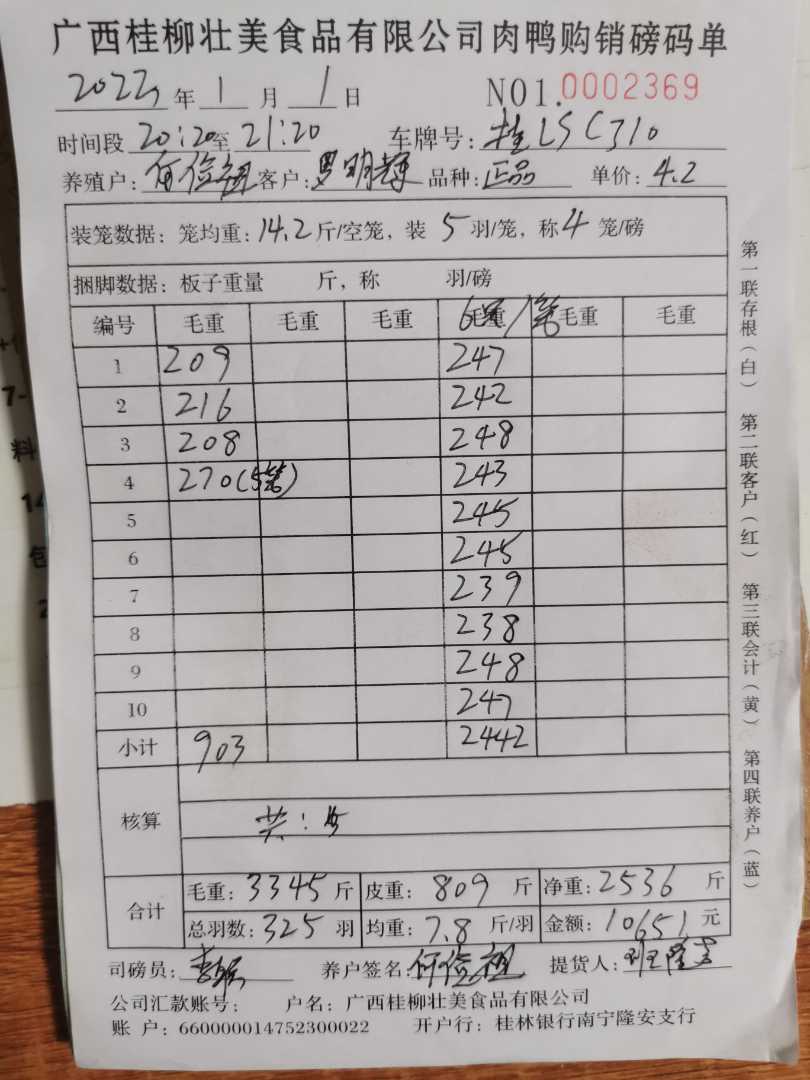 广西桂柳壮美食品有限公司肉鸭购销磅码单
2022年 1 月 1 日 NO1.0002369
时间段 20:20至 21:20 车牌号: 桂LSC310
养殖户: 何俭祖 客户: 罗明辉 品种: 正品 单价: 4.2
装笼数据: 笼均重: 14.2 斤/空笼, 装 5 羽/笼, 称 4 笼/磅
捆脚数据: 板子重量 斤, 称 羽/磅
编号 毛重 毛重 毛重 6 毛重 / 毛重 毛重
1 209 247
2 216 242
3 208 248
4 270(5笼) 243
5 245
6 245
7 239
8 238
9 248
10 247
小计 903 2442
核算 共:
合计 毛重: 3345 斤 皮重: 809 斤 净重: 2536 斤
总羽数: 325 羽 均重: 7.8 斤/羽 金额: 10651 元
司磅员: 养户签名: 何俭祖 提货人:
公司汇款账号: 户名: 广西桂柳壮美食品有限公司
账 户: 660000014752300022 开户行: 桂林银行南宁隆安支行
第一联存根(白) 第二联客户(红) 第三联会计(黄) 第四联养户(蓝)